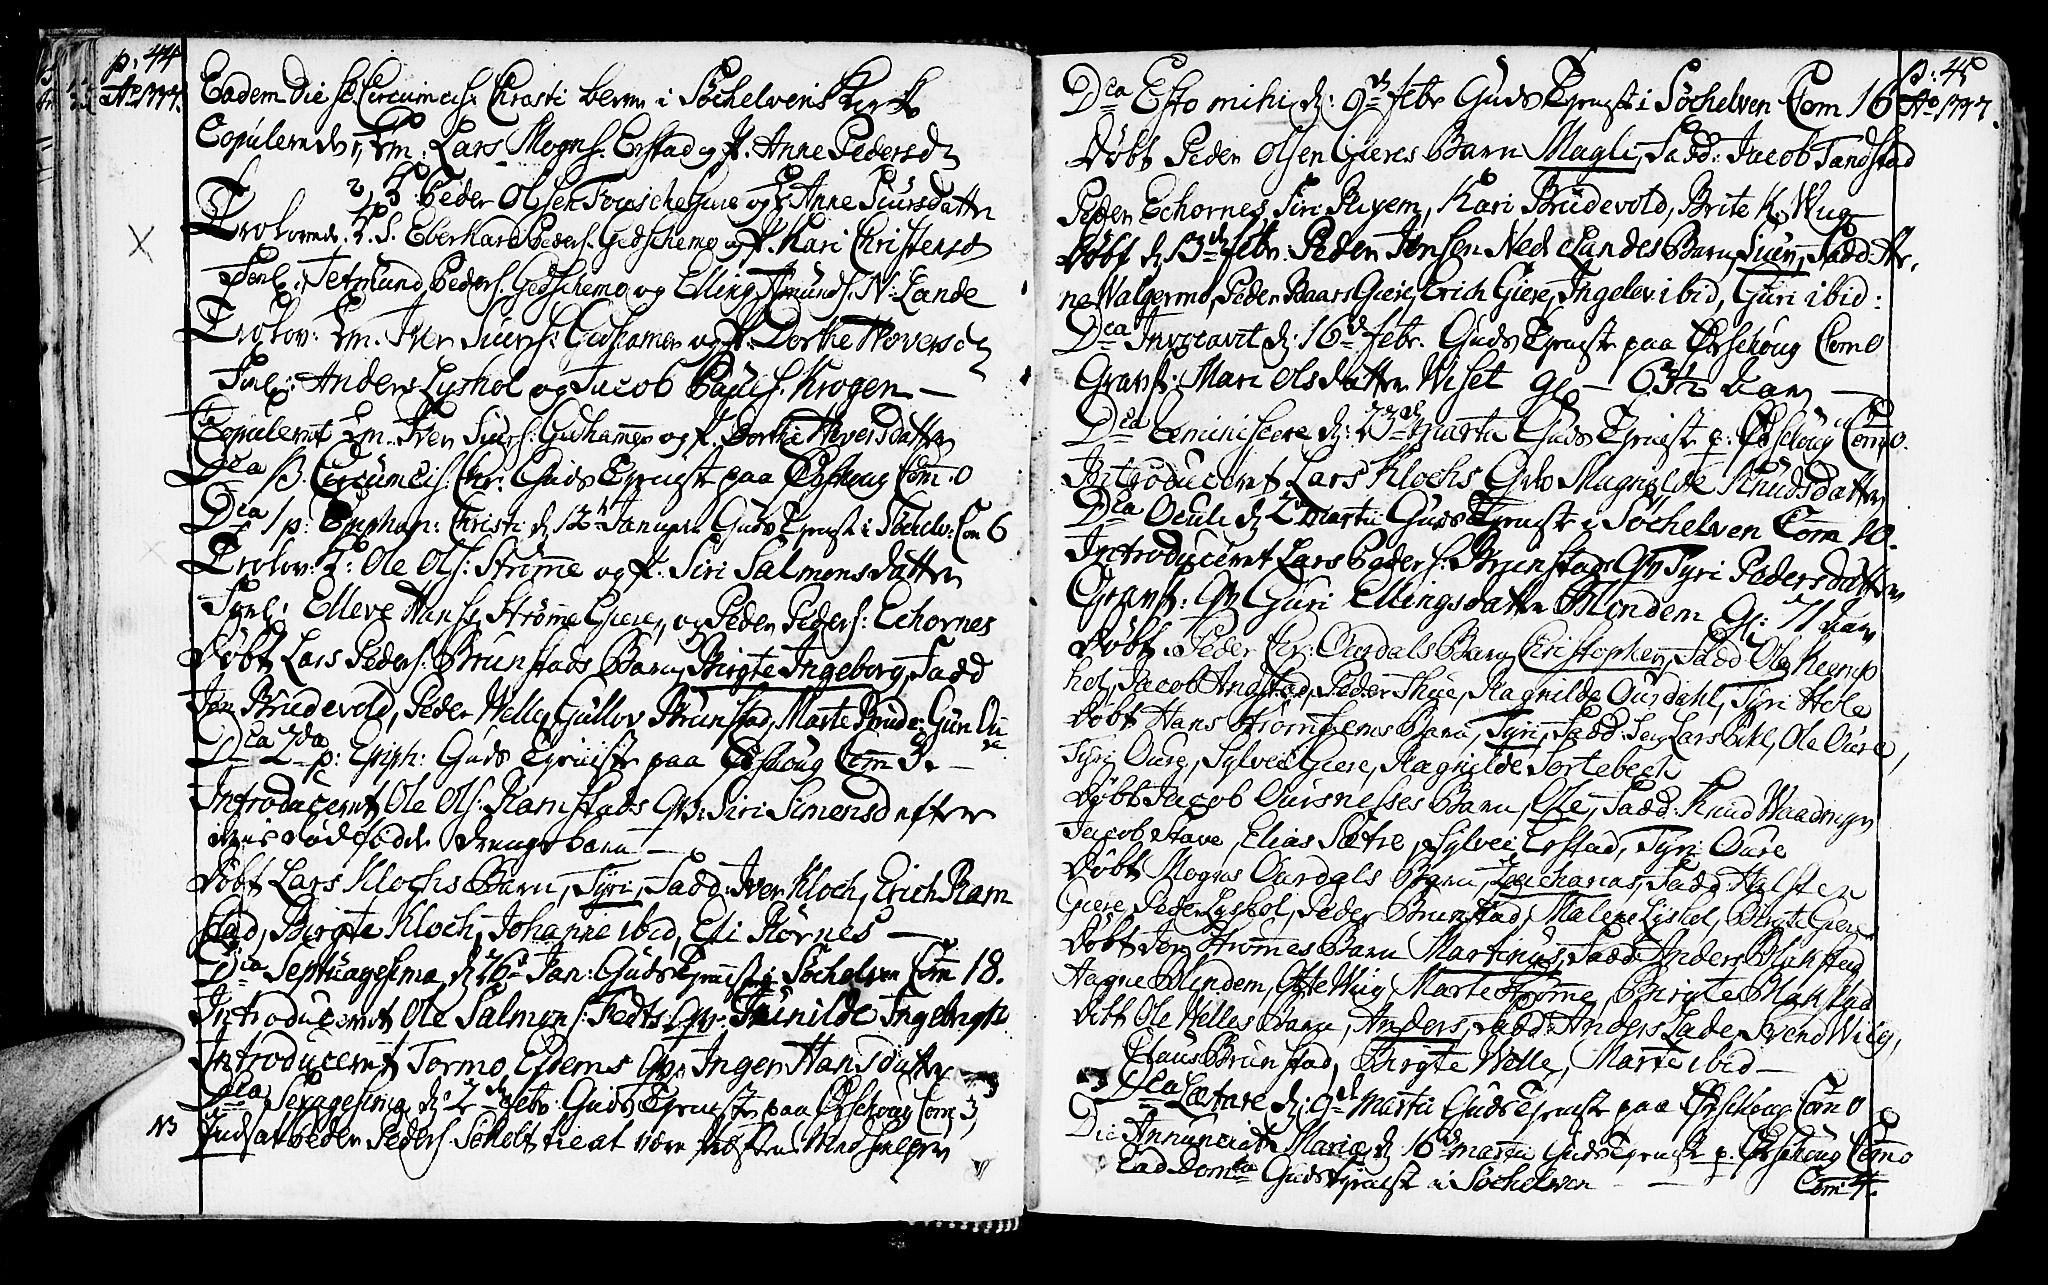 p: 44
Ao 1777.
Eadem Die  Circumcis. Christi blev i Söchelvens Kirke
Copulerede 1, Em. Lars Mogns. Erstad og P. Anne Pedersd
2, S. Peder Olsen og P. Anne Siursdatter
Trolovede. S. Eberhard Peders. Gedschemo og P. Kari Christensd
Forl: Tetmund Peders. Gedschemo og Elling Amunds. N: Lande
Trolov: Em. Iver Siurs: Gushamer og P. Dorthe Hoversd
Forl: Anders Lyshol og Jacob Pauls. Krogen —
Copuleret Em. Iver Siurs: Gushamer og P. Dorthe Hoversdatter
Dca p. Circumcis. Chr. Guds Tienest paa Ørschoug Com: 0
Dca 1 p: Epiphan: Christi d 12 Januarii Guds Tienest i Söchelv: Com 6
Trolov: S: Ole Ols: Strømme og P. Siri Salmonsdatter
Forl: Elleve Hans. Strømme Giere, og Peder Peders: Echornes
Døbt Lars Peders: Brunstads Barn, Birgte Ingeborg, Fadd
Jon Brudevold, Peder Welle, Gullov Brunstad, Marte Brude: Guri Ou
re
Dca 2da p: Epiph: Guds Tieniste paa Ørschoug Com 3. —
Introduceret Ole Ols: Ramstads Qv: Siri Simensdatter
dødfødde Drenge barn —
Døbt Lars Klochs Barn, Syri, Fadd: Iver Kloch, Erich Ram
stad, Birgte Kloch, Johanne ibid, Eli Kornes —
Dca Septuagesima, d 26 Jan: Guds Tieniste i Söchelven Com 18.
Introduceret Ole Salmons: Tedts Qv: Gunilde Ingebrigts
Introduceret Tormo Edems Qv: Inger Hansdatter
Dca Sexagesima, d: 2 Febr: Guds Tieneste paa Ørschoug Com 3,
NB
Peder Peders. Scholt
p: 45
Ao 1777.
Dca Esto mihi, d: 9de Febr Guds Tieneste i Söchelven Com 16
Døbt Peder Olsen Gieres Barn Magli, Fadd: Jacob Tandstad
Peder Echornes, Siri Ruyem, Kari Brudevold, Brite K. Wug
Døbt d 13de Febr: Peder Jensen Nedrelandes Barn, Siur, Fadd: Ar,
ne Walgermo, Peder Baars Giere, Erich Giere, Ingelev ibid, Guri ibid:
Dca Invocavit d: 16de Febr. Guds Tieneste paa Ørschoug Com 0
Gravf: Mari Olsdatter Wiset gl — 63½ Aar —
Dca Reminiscere d: 23de Martii Guds Tieneste p: Ørschoug Com 0.
Introduceret Lars Klochs Qv Magnilde Knudsdatter
Dca Oculi d 2 Martii Guds Tieneste i Söchelven Com 10.
Introduceret Lars Peders: Brunstads Qv Syri Pedersdatter
Gravf: Qv Guri Ellingsdatter Blindem Gl: 71 Aar
Døbt Peder Chr: Ourdals Barn Christopher, Fadd Ole Keerp
hol, Jacob Andstad, Peder Skue, Ragnilde Ourdahl, Syri Hole
Døbt Hans Strømshems Barn, Syri, Fadd. Jens Lars Dahl, Ole Oure,
Syri Oure, Sylvei Giere, Ragnilde Sortebech
Døbt Jacob Oursnesses Barn, Ole, Fadd: Knud Waadringen
Jacob Stave, Elias Sætre, Sylvei Erstad, Syri Oure
Døbt Mogns Ourdals Barn, Zacharias, Fadd: Halsten
Giere, Peder Lyshol, Peder Brunstad, Malene Lyshol, Birgte Giere
Døbt Jon Strømmes Barn Martinus, Fadd: Anders Blakstad
Hagne Blindem, Otte Wiig, Marte Strømme, Birgte Blakstad
Døbt Ole Welles Barn, Anders, Fadd: Anders Lade, Svend Wiig,
Claus Brunstad, Birgte Welle, Marte ibid —
Dca Lætare, d: 9de Martii Guds Tieneste paa Ørschoug Com 0
Die Annunciat Mariæ d 16de Martii Guds Tieneste p: Ørschoug Com 0
Ead Domca Guds Tieneste i Söchelven — Com 4.